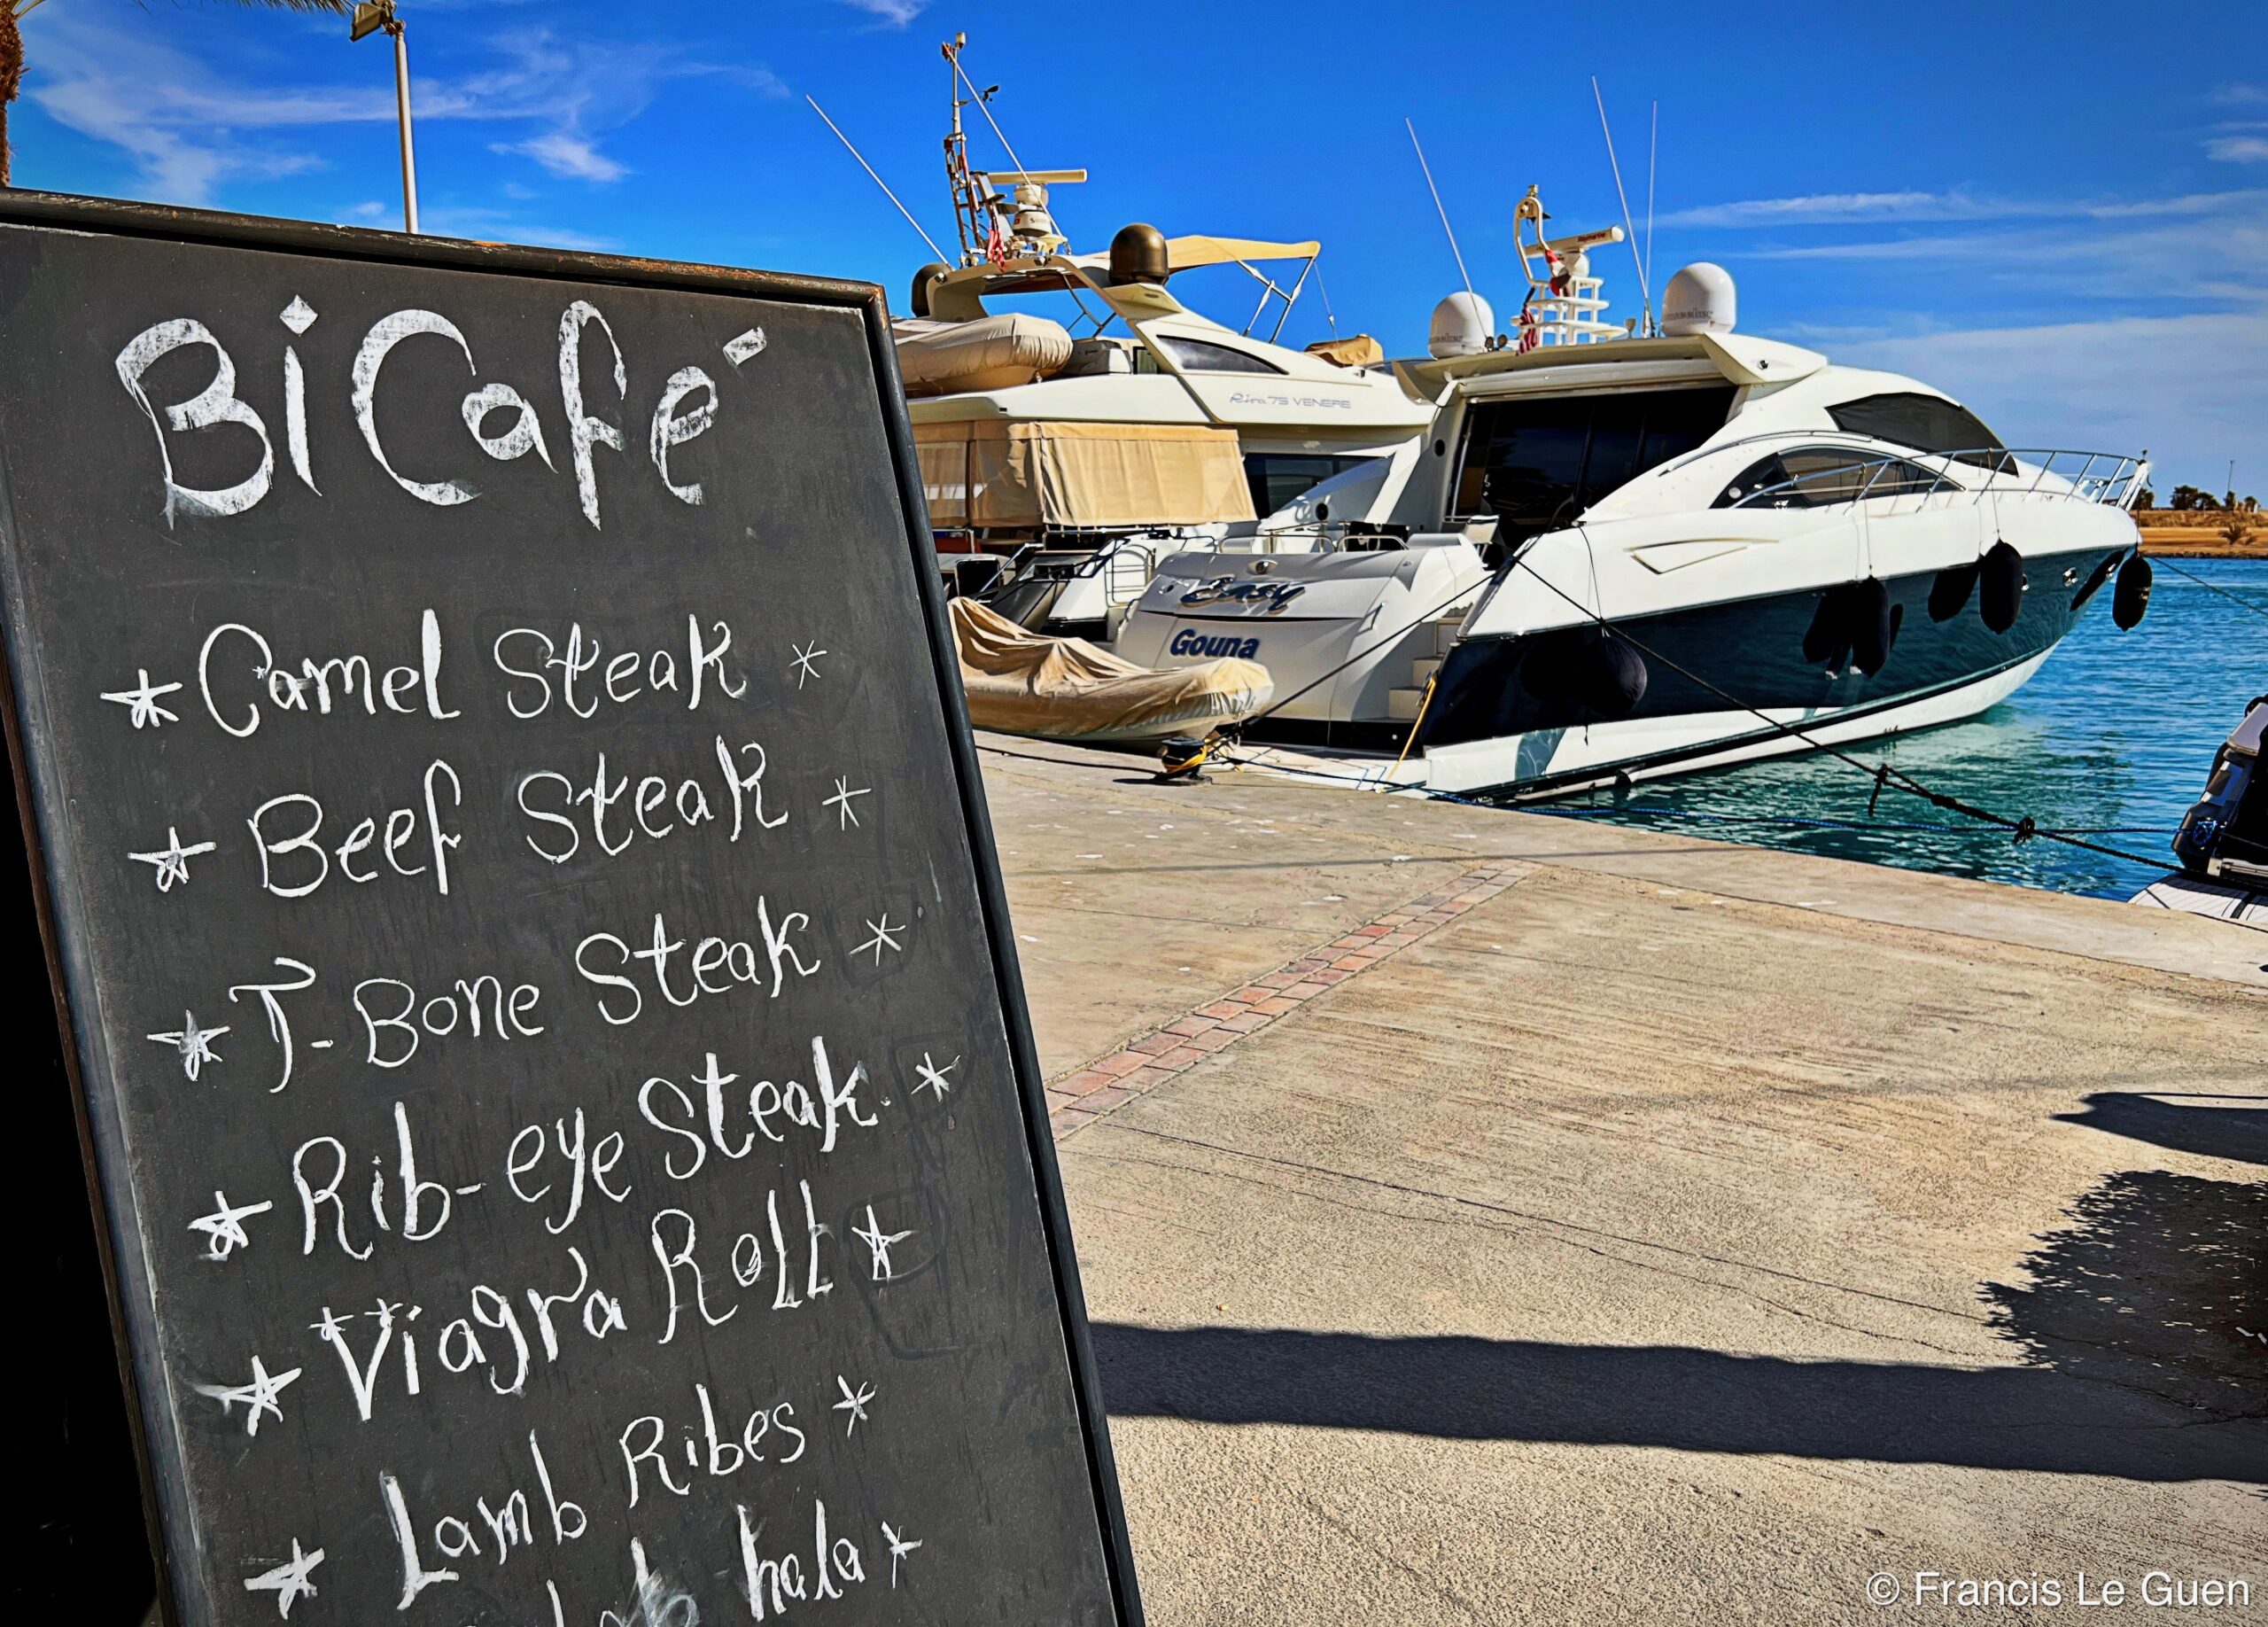 BiCafé
*Camel Steak*
*Beef Steak*
*T-Bone Steak*
*Rib-eye Steak.*
*Viagra Roll*
*Lamb Ribes*
hala*
Riva 75 VENERE
Easy
Gouna
© Francis Le Guen